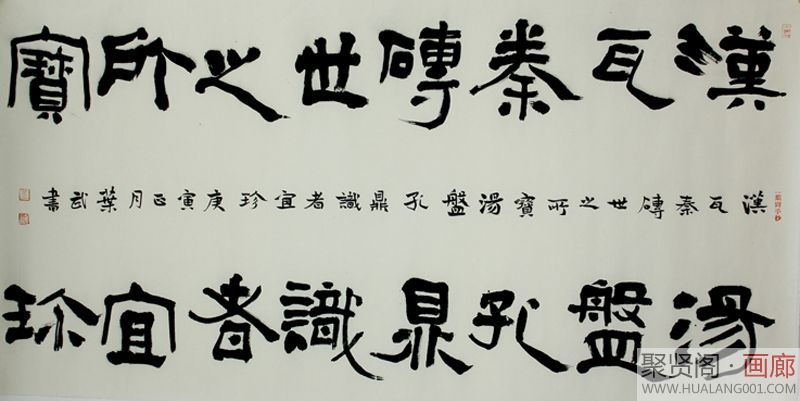 漢瓦秦磚世之所寶
漢瓦秦磚世之所寶湯盤孔鼎識者宜珍庚寅正月葉武書
湯盤孔鼎識者宜珍
聚贤阁·画廊
WWW.HUALANG001.COM